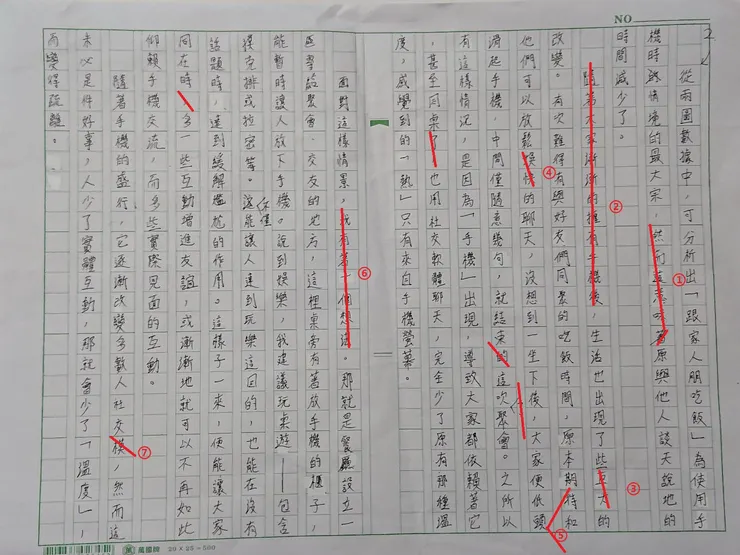 NO
2
從兩圖數據中，可分析出「跟家人朋吃飯」為使用手
機時與情境的最大宗，然而這意味著原與他人談天說地的
時間減少了。
隨著大家漸漸的擁有手機後，生活也出現了些互大的
改變。有次難得有與好友們同聚的吃飯時間，原本期待和
他們可以放鬆愉快的聊天，沒想到一坐下後，大家便低頭
滑起手機，中間僅隨意幾句，就結束的這次聚會。之所以
有這樣情況，是因為「手機」出現，導致大家都依賴著它
，甚至同桌了也用社交軟體聊天，完全少了原有那種溫
度，感覺到的「熱」只有來自手機螢幕。
面對這樣情景，我有著一個想法。那就是餐廳設立一
區專給聚會、交友的地方，這裡桌旁有著放手機的櫃子，
能暫時讓人放下手機。說到娛樂，我建議玩桌遊——包含
撲克牌或拉密等。這不僅能讓人達到玩樂這回的，也能在沒有
話題時，達到緩解尷尬的作用。這樣子一來，便能讓大家
同在時多一些互動增進友誼，或漸漸地就可以不再如此
仰賴手機交流，而多些實際見面的互動。
隨著手機的盛行，它逐漸改變多數人社交模，然而這
未必是件好事，人少了實體互動，那就會少了「溫度」，
而變得疏離。
①
②
③
④
⑤
⑥
⑦
萬國牌 20×25=500